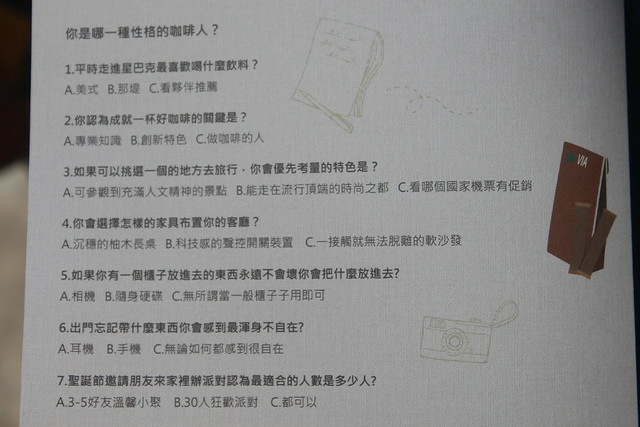 你是哪一種性格的咖啡人？
1.平時走進星巴克最喜歡喝什麼飲料？
A.美式 B.那堤 C.看夥伴推薦
2.你認為成就一杯好咖啡的關鍵是？
A.專業知識 B.創新特色 C.做咖啡的人
3.如果可以挑選一個的地方去旅行，你會優先考量的特色是？
A.可參觀到充滿人文精神的景點 B.能走在流行頂端的時尚之都 C.看哪個國家機票有促銷
4.你會選擇怎樣的家具布置你的客廳？
A.沉穩的柚木長桌 B.科技感的聲控開關裝置 C.一接觸就無法脫離的軟沙發
5.如果你有一個櫃子放進去的東西永遠不會壞你會把什麼放進去?
A.相機 B.隨身硬碟 C.無所謂當一般櫃子子用即可
6.出門忘記帶什麼東西你會感到最渾身不自在?
A.耳機 B.手機 C.無論如何都感到很自在
7.聖誕節邀請朋友來家裡辦派對認為最適合的人數是多少人?
A.3-5好友溫馨小聚 B.30人狂歡派對 C.都可以
VIA